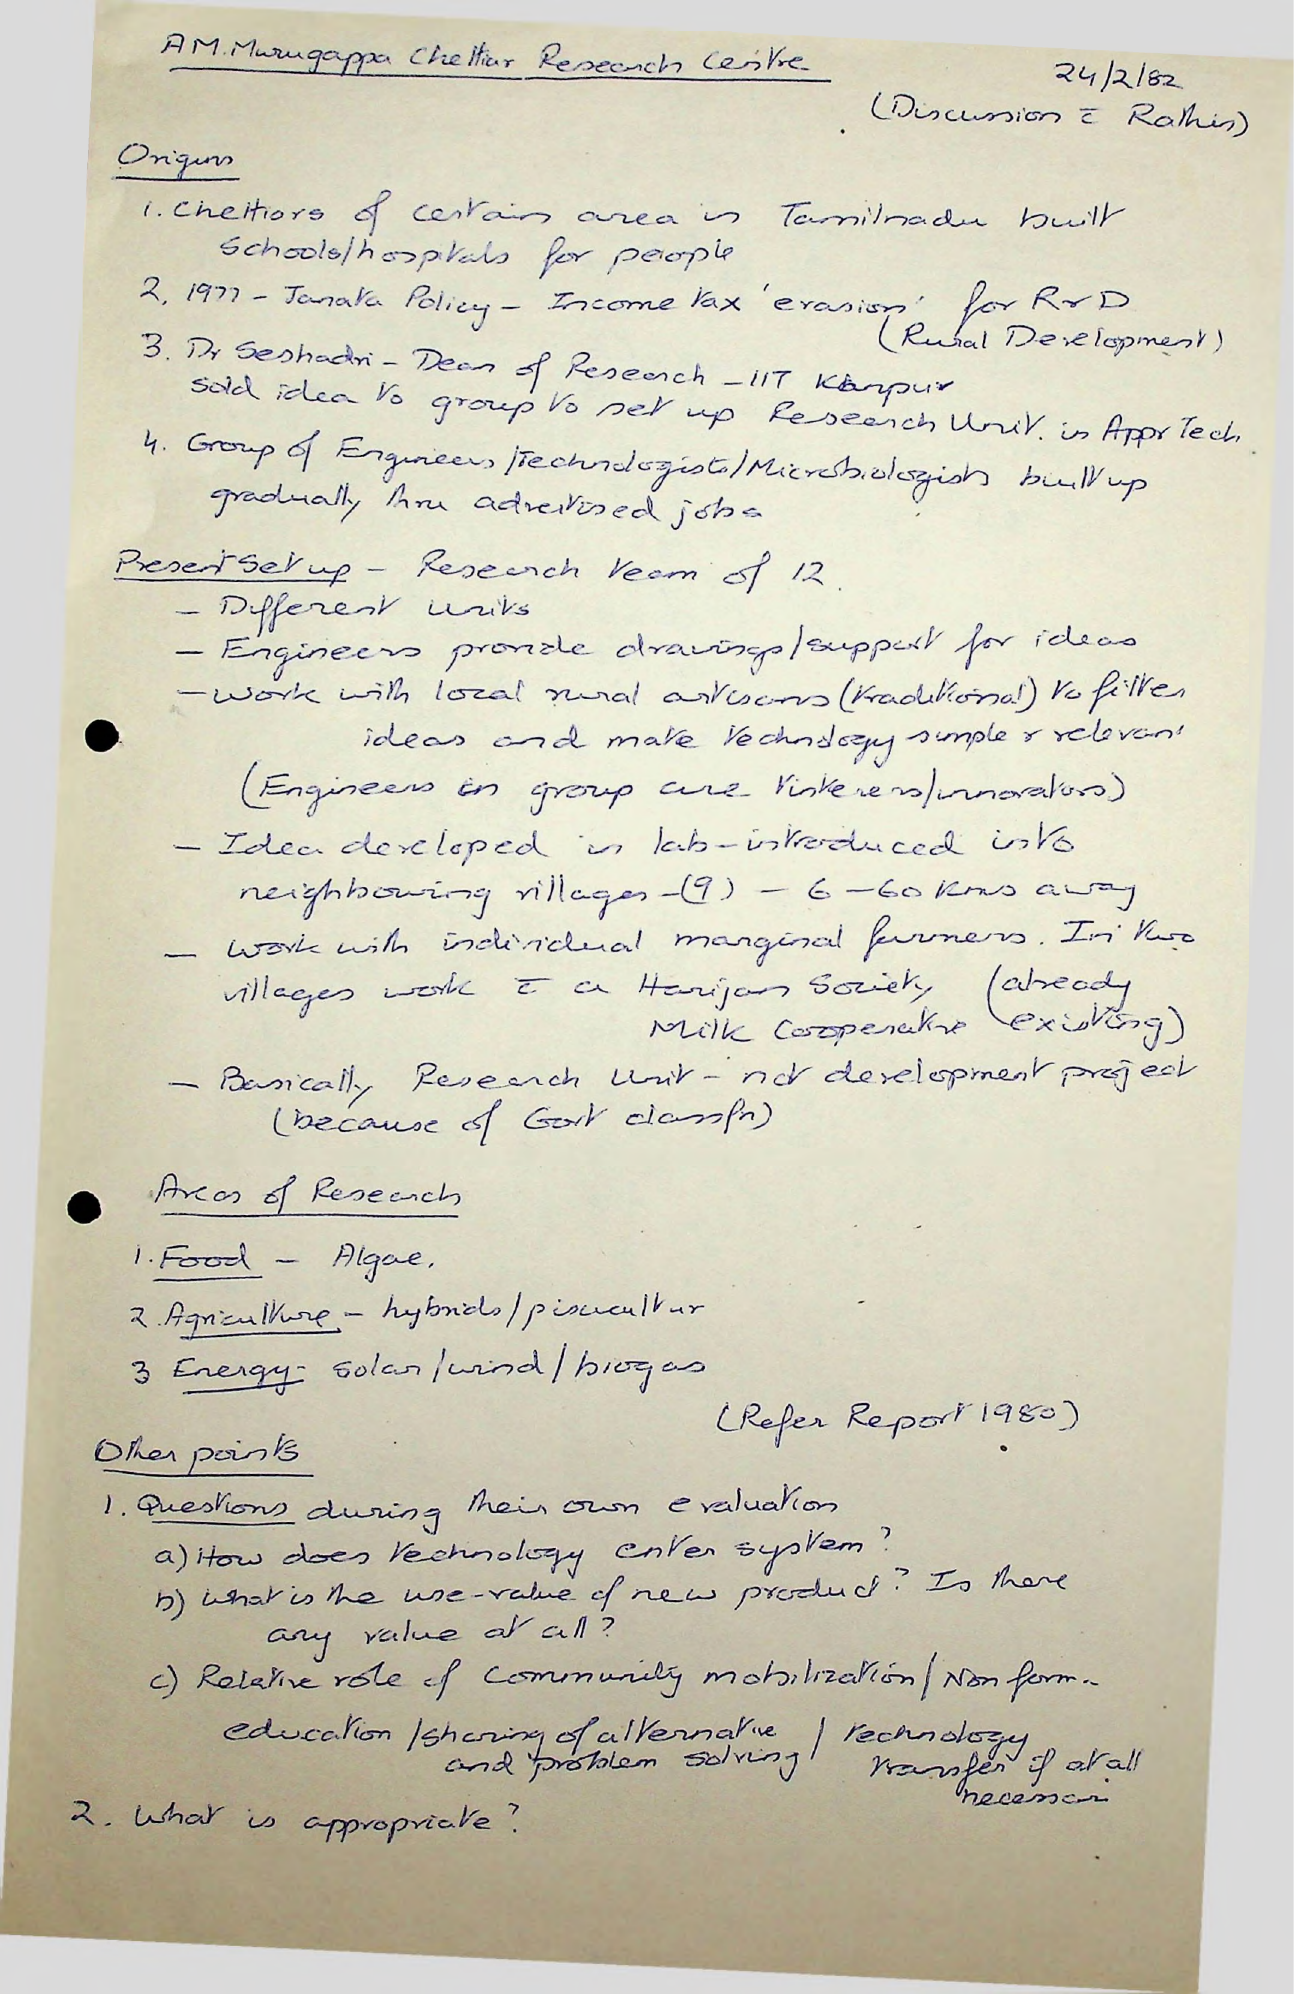 A.M. Murugappa Chettiar Research Centre
24/2/82
(Discussion c̄ Rathis)
Origins
1. Chettiors of certain area in Tamilnadu built
Schools/hospitals for people
2. 1977 - Janata Policy - Income tax 'evasion' for R & D
(Rural Development)
3. Dr Seshadri - Dean of Research - IIT Kanpur
sold idea to group to set up Research Unit. in Appr Tech.
4. Group of Engineers/Technologists/Microbiologists built up
gradually thru advertised jobs
Present Set up - Research team of 12.
- Different units
- Engineers provide drawings/support for ideas
- work with local rural artisans (traditional) to filter
ideas and make technology simple & relevant
(Engineers in group are tinkerers/innovators)
- Idea developed in lab - introduced into
neighbouring villages - (9) - 6 - 60 Kms away
- work with individual marginal farmers. In two
villages work c̄ a Harijan Society (already
Milk Cooperative existing)
- Basically Research Unit - not development project
(because of Govt classfn)
Areas of Research
1. Food - Algae.
2. Agriculture - hybrids/pisucultur
3 Energy - solar/wind/biogas
(Refer Report 1980)
Other points
1. Questions during their own evaluation
a) How does technology enter system?
b) What is the use-value of new product? Is there
any value at all?
c) Relative role of Community mobilization/Non form.
education/sharing of alternative / technology
and problem solving transfer if at all
necessar
2. What is appropriate?